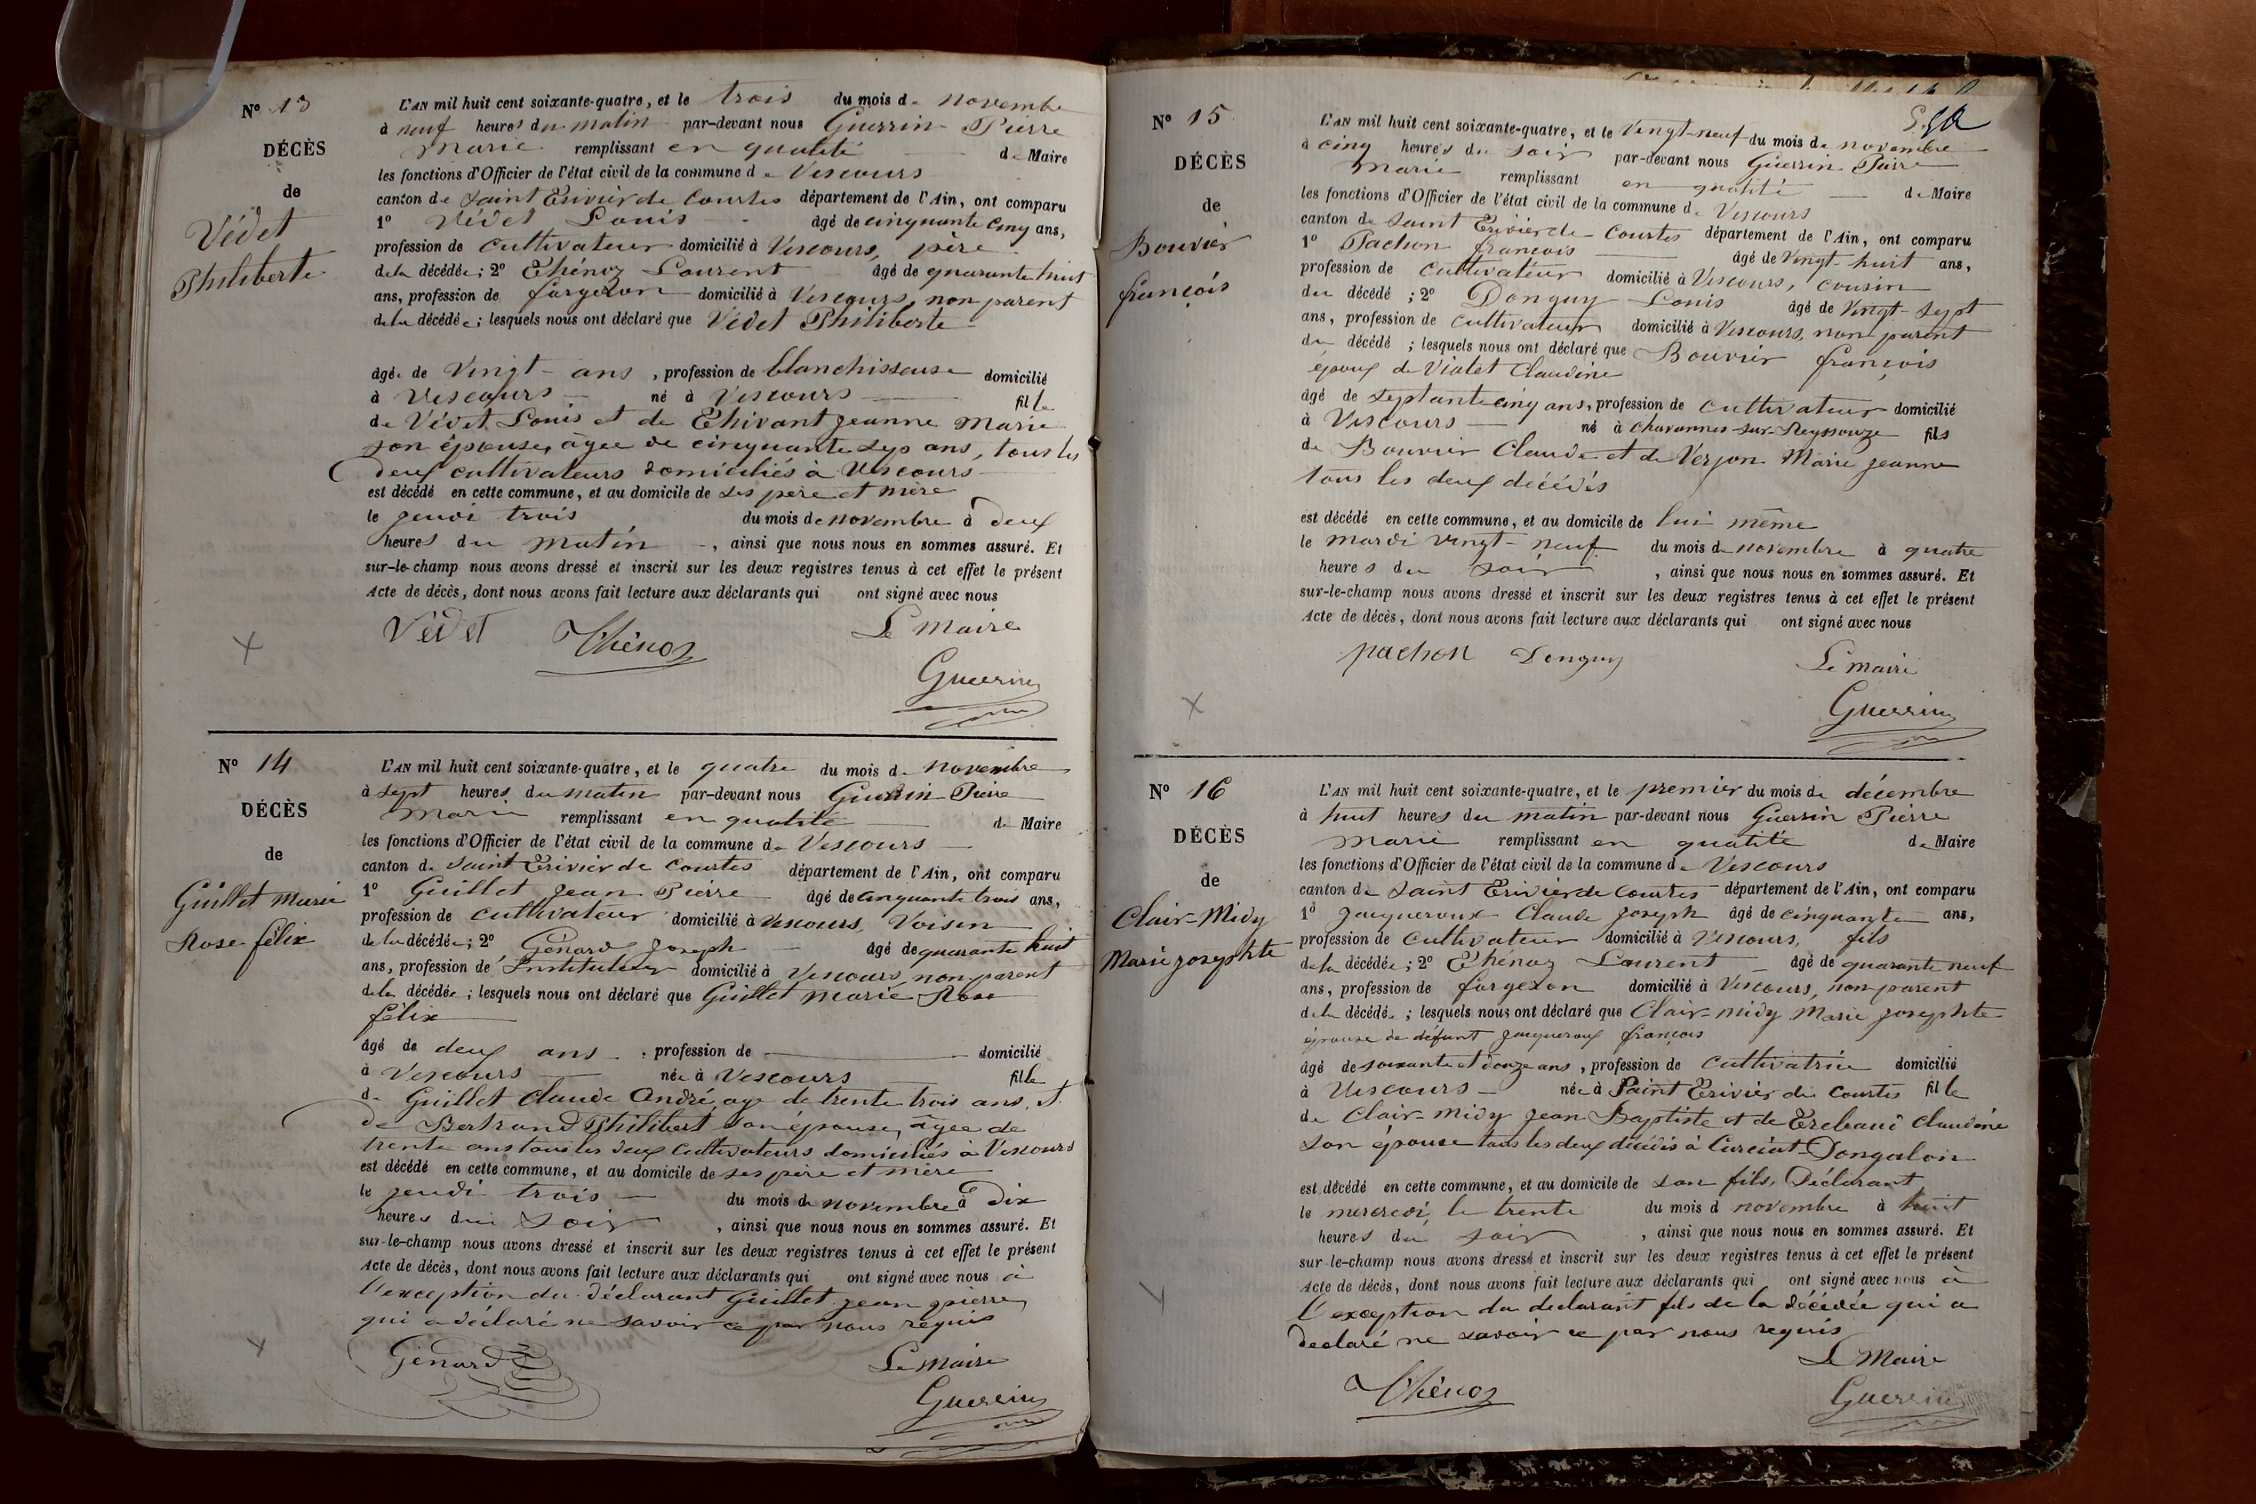 N° 13
DÉCÈS
de
Védet
Philiberte
L'AN mil huit cent soixante-quatre, et le trois du mois de novembre
à neuf heures du matin par-devant nous Guerrin Pierre
Marie remplissant en qualité de Maire
les fonctions d'Officier de l'état civil de la commune de Vescours
canton de Saint Trivier de Courtes département de l'Ain, ont comparu
1° Védet Louis âgé de cinquante cinq ans,
profession de cultivateur domicilié à Vescours, père
de la décédée; 2° Thénoz Laurent âgé de quarante huit
ans, profession de forgeron domicilié à Vescours, non parent
de la décédée; lesquels nous ont déclaré que Védet Philiberte
âgée de Vingt ans, profession de blanchisseuse domicilié
à Vescours né à Vescours fille
de Védet Louis et de Thivant Jeanne Marie
son épouse, âgée de cinquante sep ans, tous les
deux cultivateurs domiciliés à Vescours
est décédé en cette commune, et au domicile de ses père et mère
le jeudi trois du mois de novembre à deux
heures du matin, ainsi que nous nous en sommes assuré. Et
sur-le-champ nous avons dressé et inscrit sur les deux registres tenus à cet effet le présent
Acte de décès, dont nous avons fait lecture aux déclarants qui ont signé avec nous
Védet Thénoz Le Maire
Guerrin
N° 14
DÉCÈS
de
Guillet Marie
Rose félix
L'AN mil huit cent soixante-quatre, et le quatre du mois de novembre
à sept heures du matin par-devant nous Guerrin Pierre
Marie remplissant en qualité de Maire
les fonctions d'Officier de l'état civil de la commune de Vescours
canton de Saint Trivier de Courtes département de l'Ain, ont comparu
1° Guillet Jean Pierre âgé de cinquante trois ans,
profession de cultivateur domicilié à Vescours, Voisin
de la décédée; 2° Génard Joseph âgé de quarante huit
ans, profession de Instituteur domicilié à Vescours, non parent
de la décédée; lesquels nous ont déclaré que Guillet Marie Rose
félix
âgé de deux ans, profession de domicilié
à Vescours née à Vescours fille
de Guillet Claude André, age de trente trois ans, et
de Bertrand Philibert son épouse, âgée de
trente ans tous les deux cultivateurs domiciliés à Vescours
est décédé en cette commune, et au domicile de ses père et mère
le jeudi trois du mois de novembre à Dix
heures du soir, ainsi que nous nous en sommes assuré. Et
sur-le-champ nous avons dressé et inscrit sur les deux registres tenus à cet effet le présent
Acte de décès, dont nous avons fait lecture aux déclarants qui ont signé avec nous à
l'exception du déclarant Guillet Jean pierre
qui a déclaré ne savoir ce par nous requis
Génard Le Maire
Guerrin
N° 15
DÉCÈS
de
Bouvier
françois
L'AN mil huit cent soixante-quatre, et le Vingt-neuf du mois de novembre
à cinq heures du soir par-devant nous Guerrin Pierre
Marie remplissant en qualité de Maire
les fonctions d'Officier de l'état civil de la commune de Vescours
canton de Saint Trivier de Courtes département de l'Ain, ont comparu
1° Pachon françois âgé de Vingt-huit ans,
profession de cultivateur domicilié à Vescours, cousin
du décédé; 2° Donguy Louis âgé de Vingt-sept
ans, profession de cultivateur domicilié à Vescours, non parent
du décédé; lesquels nous ont déclaré que Bouvier françois
époux de Violet Claudine
âgé de septante cinq ans, profession de cultivateur domicilié
à Vescours né à Chavannes-sur-Reyssouze fils
de Bouvier Claude et de Verjon Marie Jeanne
tous les deux décédés
est décédé en cette commune, et au domicile de lui même
le mardi vingt-neuf du mois de novembre à quatre
heures du soir, ainsi que nous nous en sommes assuré. Et
sur-le-champ nous avons dressé et inscrit sur les deux registres tenus à cet effet le présent
Acte de décès, dont nous avons fait lecture aux déclarants qui ont signé avec nous
pachon Donguy Le maire
Guerrin
N° 16
DÉCÈS
de
Clair-Midy
Marie josephte
L'AN mil huit cent soixante-quatre, et le premier du mois de décembre
à huit heures du matin par-devant nous Guerrin Pierre
Marie remplissant en qualité de Maire
les fonctions d'Officier de l'état civil de la commune de Vescours
canton de Saint Trivier de Courtes département de l'Ain, ont comparu
1° Jacqueroux Claude Joseph âgé de cinquante ans,
profession de cultivateur domicilié à Vescours, fils
de la décédée; 2° Thénoz Laurent âgé de quarante neuf
ans, profession de forgeron domicilié à Vescours, non parent
de la décédée; lesquels nous ont déclaré que Clair-midy Marie josephte
épouse de défunt Jacqueroux françois
âgé de soixante et douze ans, profession de cultivatrice domicilié
à Vescours née à Saint Trivier de Courtes fille
de Clair-midy Jean Baptiste et de Claudine
son épouse tous les deux décédés à Curciat-Dongalon
est décédé en cette commune, et au domicile de son fils, Déclarant
le mercredi, le trente du mois d novembre à huit
heures du soir, ainsi que nous nous en sommes assuré. Et
sur-le-champ nous avons dressé et inscrit sur les deux registres tenus à cet effet le présent
Acte de décès, dont nous avons fait lecture aux déclarants qui ont signé avec nous à
l'exception du declarant fils de la décédée qui a
declaré ne savoir ce par nous requis
Thénoz Le Maire
Guerrin